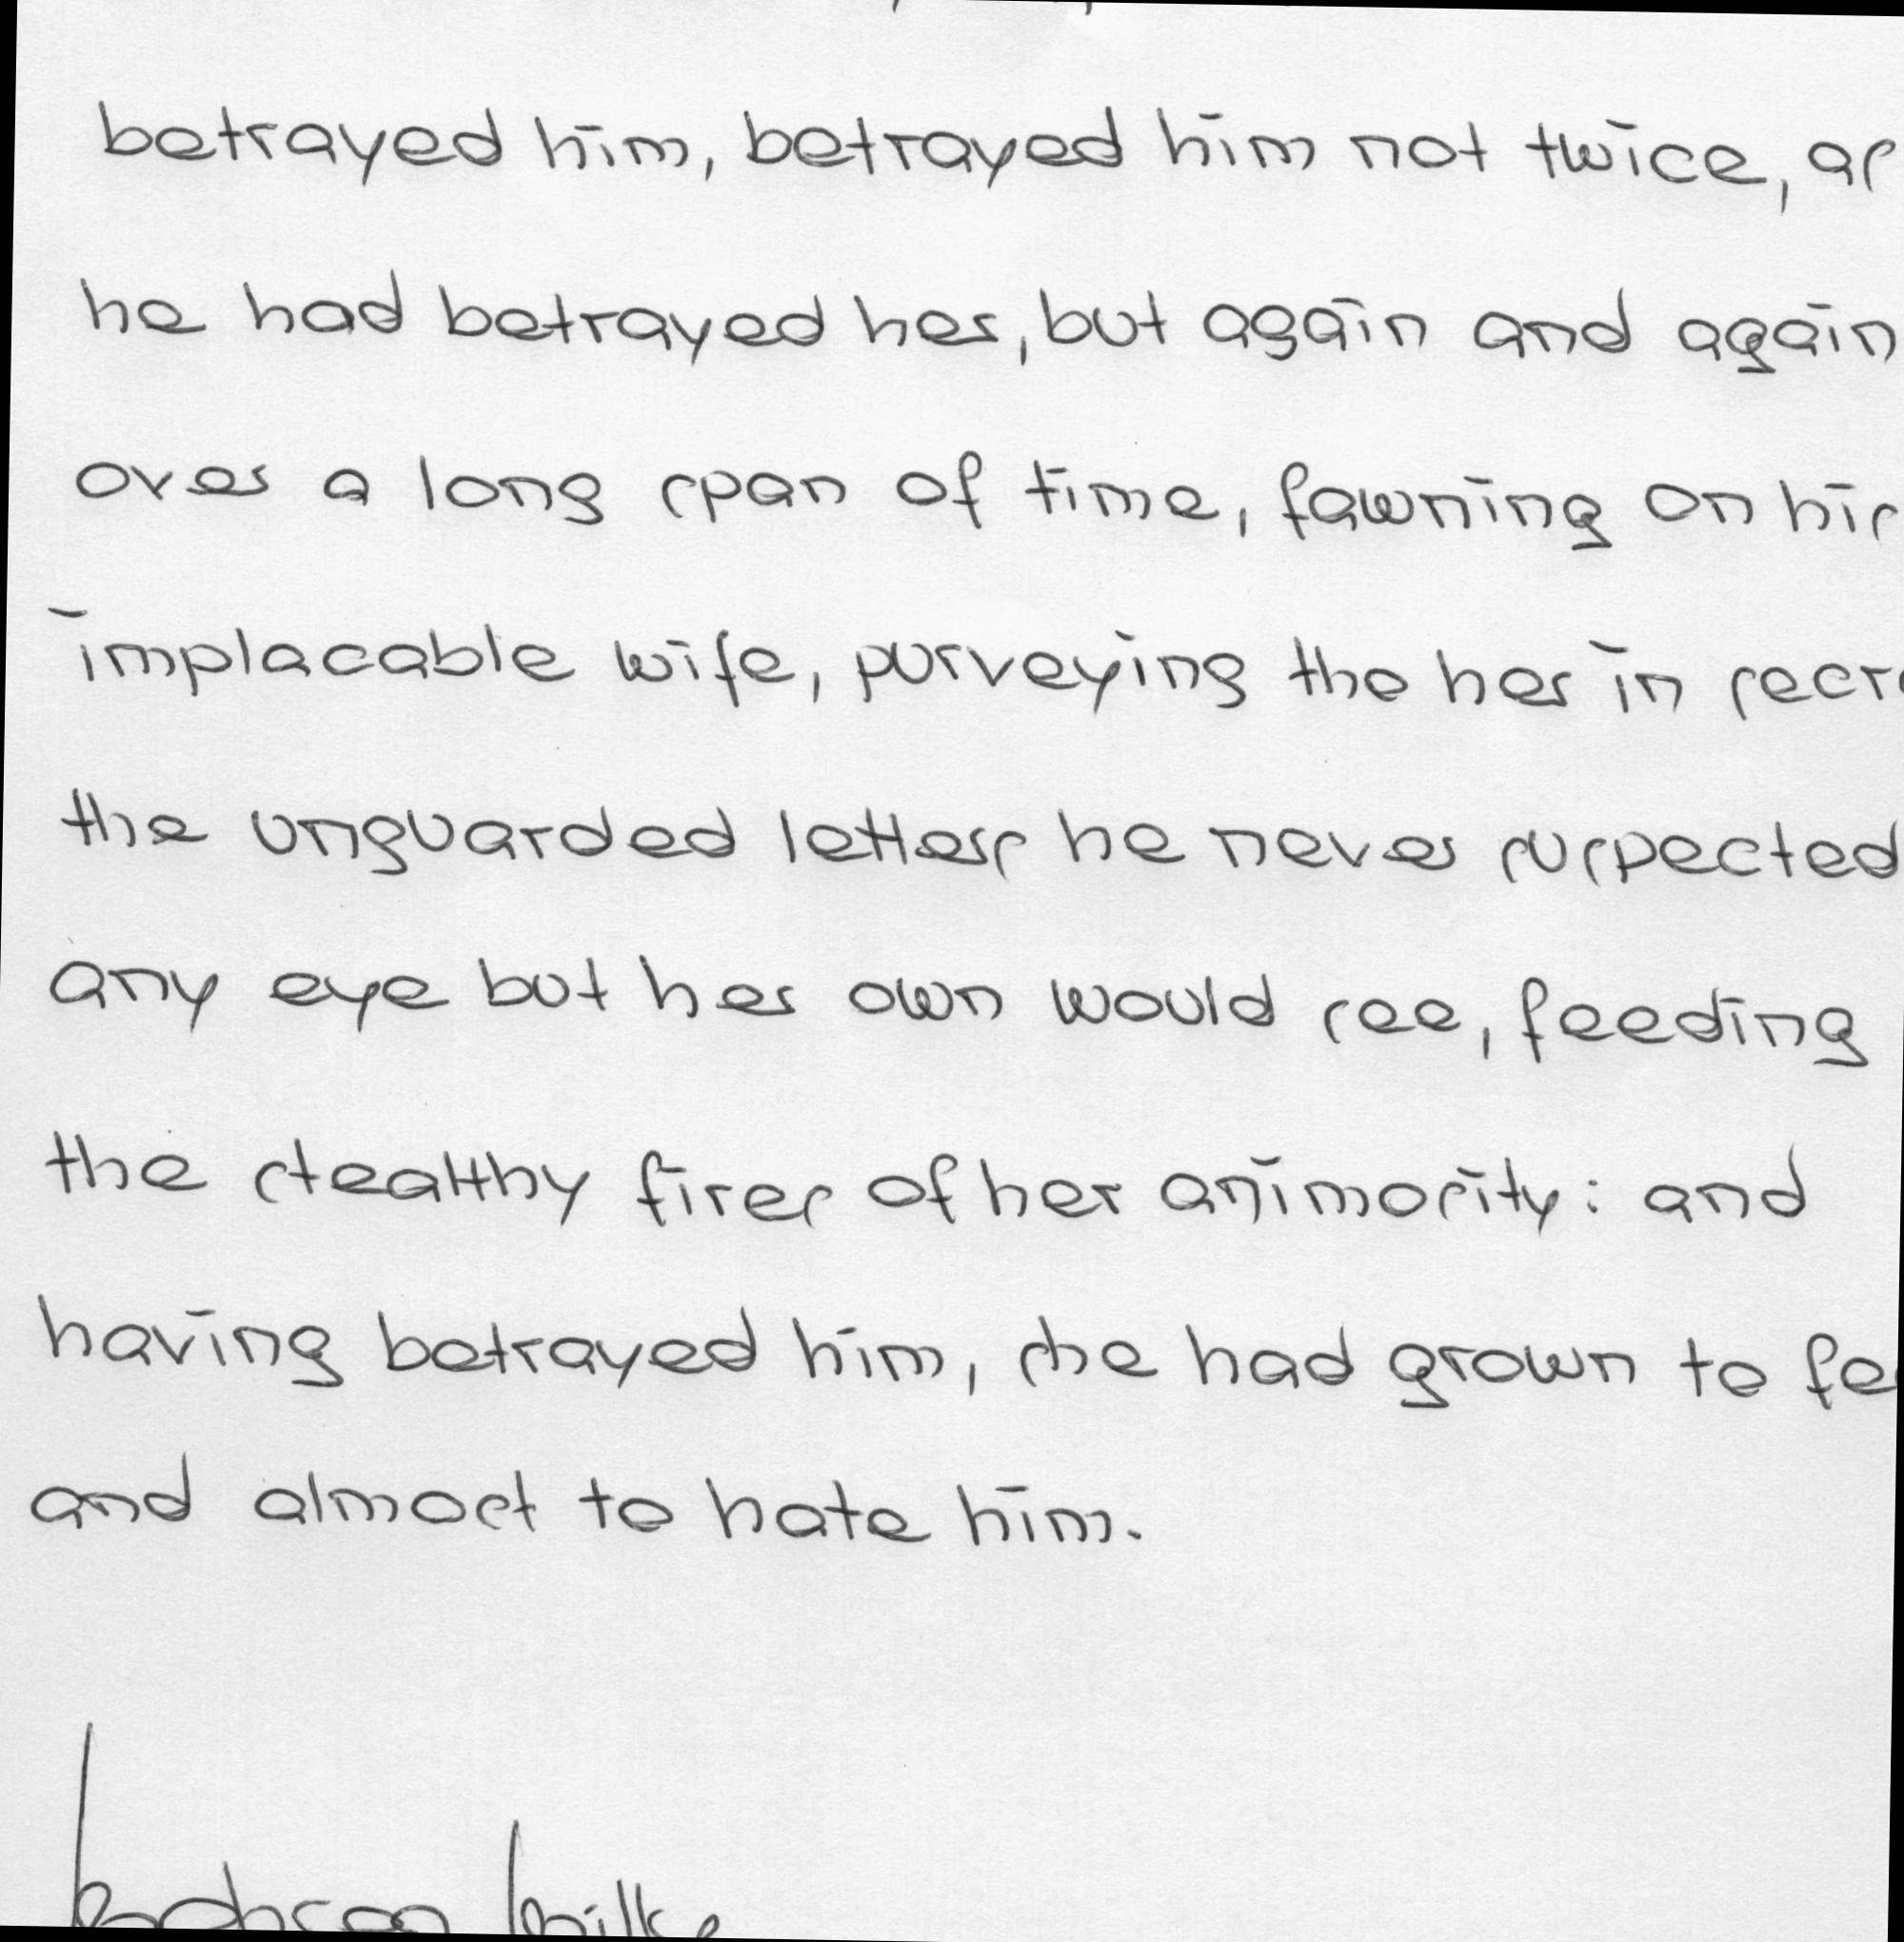 betrayed him, betrayed him not twice, as
he had betrayed her, but again and again
over a long span of time, fawning on his
implacable wife, purveying the her in
the unguarded letters he never suspected
any eye but her own would see, feeding
the stealthy fires of her animosity: and
having betrayed him, she had grown to
and almost to hate him.